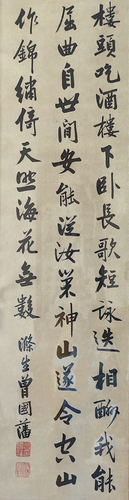 樓頭吃酒樓下卧長歌短詠迭相酬我能
屈曲自世間安能從汝巢神山遂令空山
作錦繡倚天照海花無數 滌生曾國藩